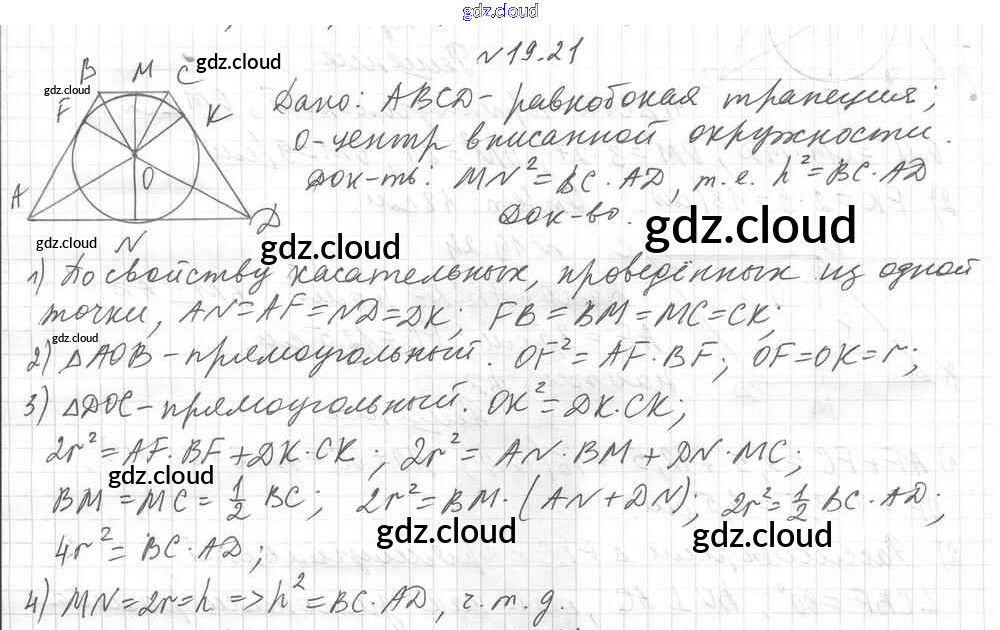 gdz.cloud
№19.21
B M C gdz.cloud
gdz.cloud
F K
Дано: ABCD - равнобокая трапеция;
O-центр вписанной окружности.
O
A D
N
Док-ть: MN² = BC · AD, т.е. h² = BC · AD
Док-во.
gdz.cloud
gdz.cloud
gdz.cloud
1) По свойству касательных, проведённых из одной
точки, AN = AF = ND = DK; FB = BM = MC = CK;
gdz.cloud
2) △AOB - прямоугольный. OF² = AF · BF; OF = OK = r;
3) △DOC - прямоугольный. OK² = DK · CK;
2r² = AF · BF + DK · CK; 2r² = AN · BM + DN · MC;
gdz.cloud
BM = MC = 1/2 BC; 2r² = BM · (AN + DN); 2r² = 1/2 BC · AD;
gdz.cloud gdz.cloud
4r² = BC · AD;
4) MN = 2r = h => h² = BC · AD, ч.т.д.